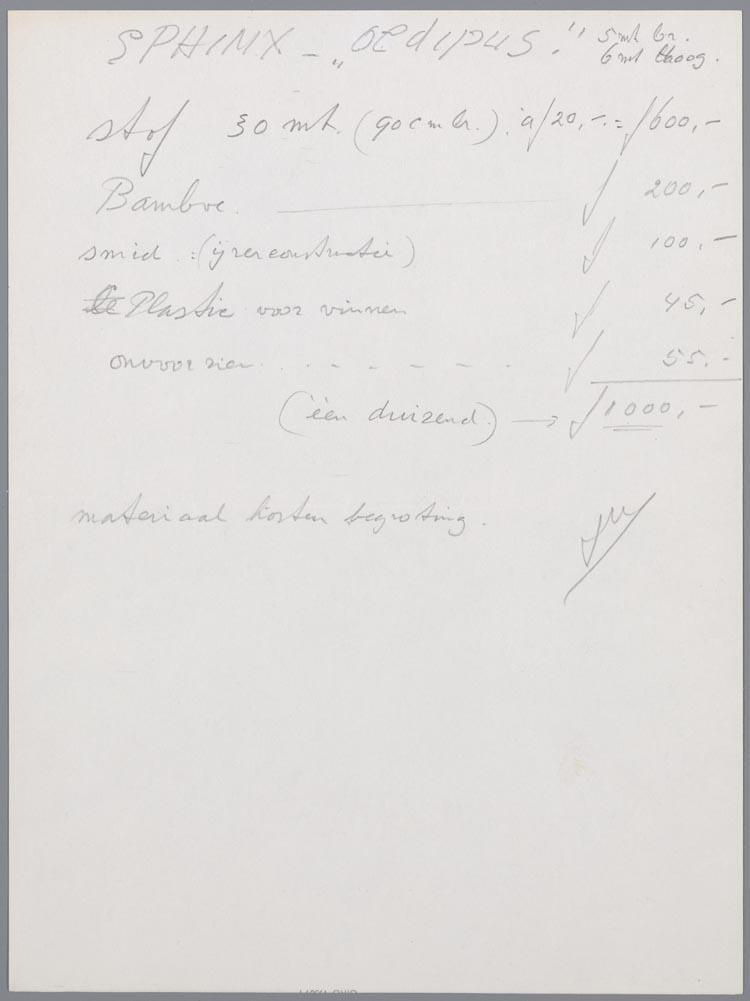 SPHINX – „OEdipus." 5 mt br.
6 mt hoog.
stof 30 mt. (90 cm br.). à ƒ 20,-. = ƒ 600,-
Bamboe. ƒ 200,-
smid :(ijzerconstructie) ƒ 100,-
Plastic voor vinnen ƒ 45,-
onvoorzien . . . - - - - . ƒ 55.-
(één duizend.) → ƒ 1000,-
materiaal kosten begroting.